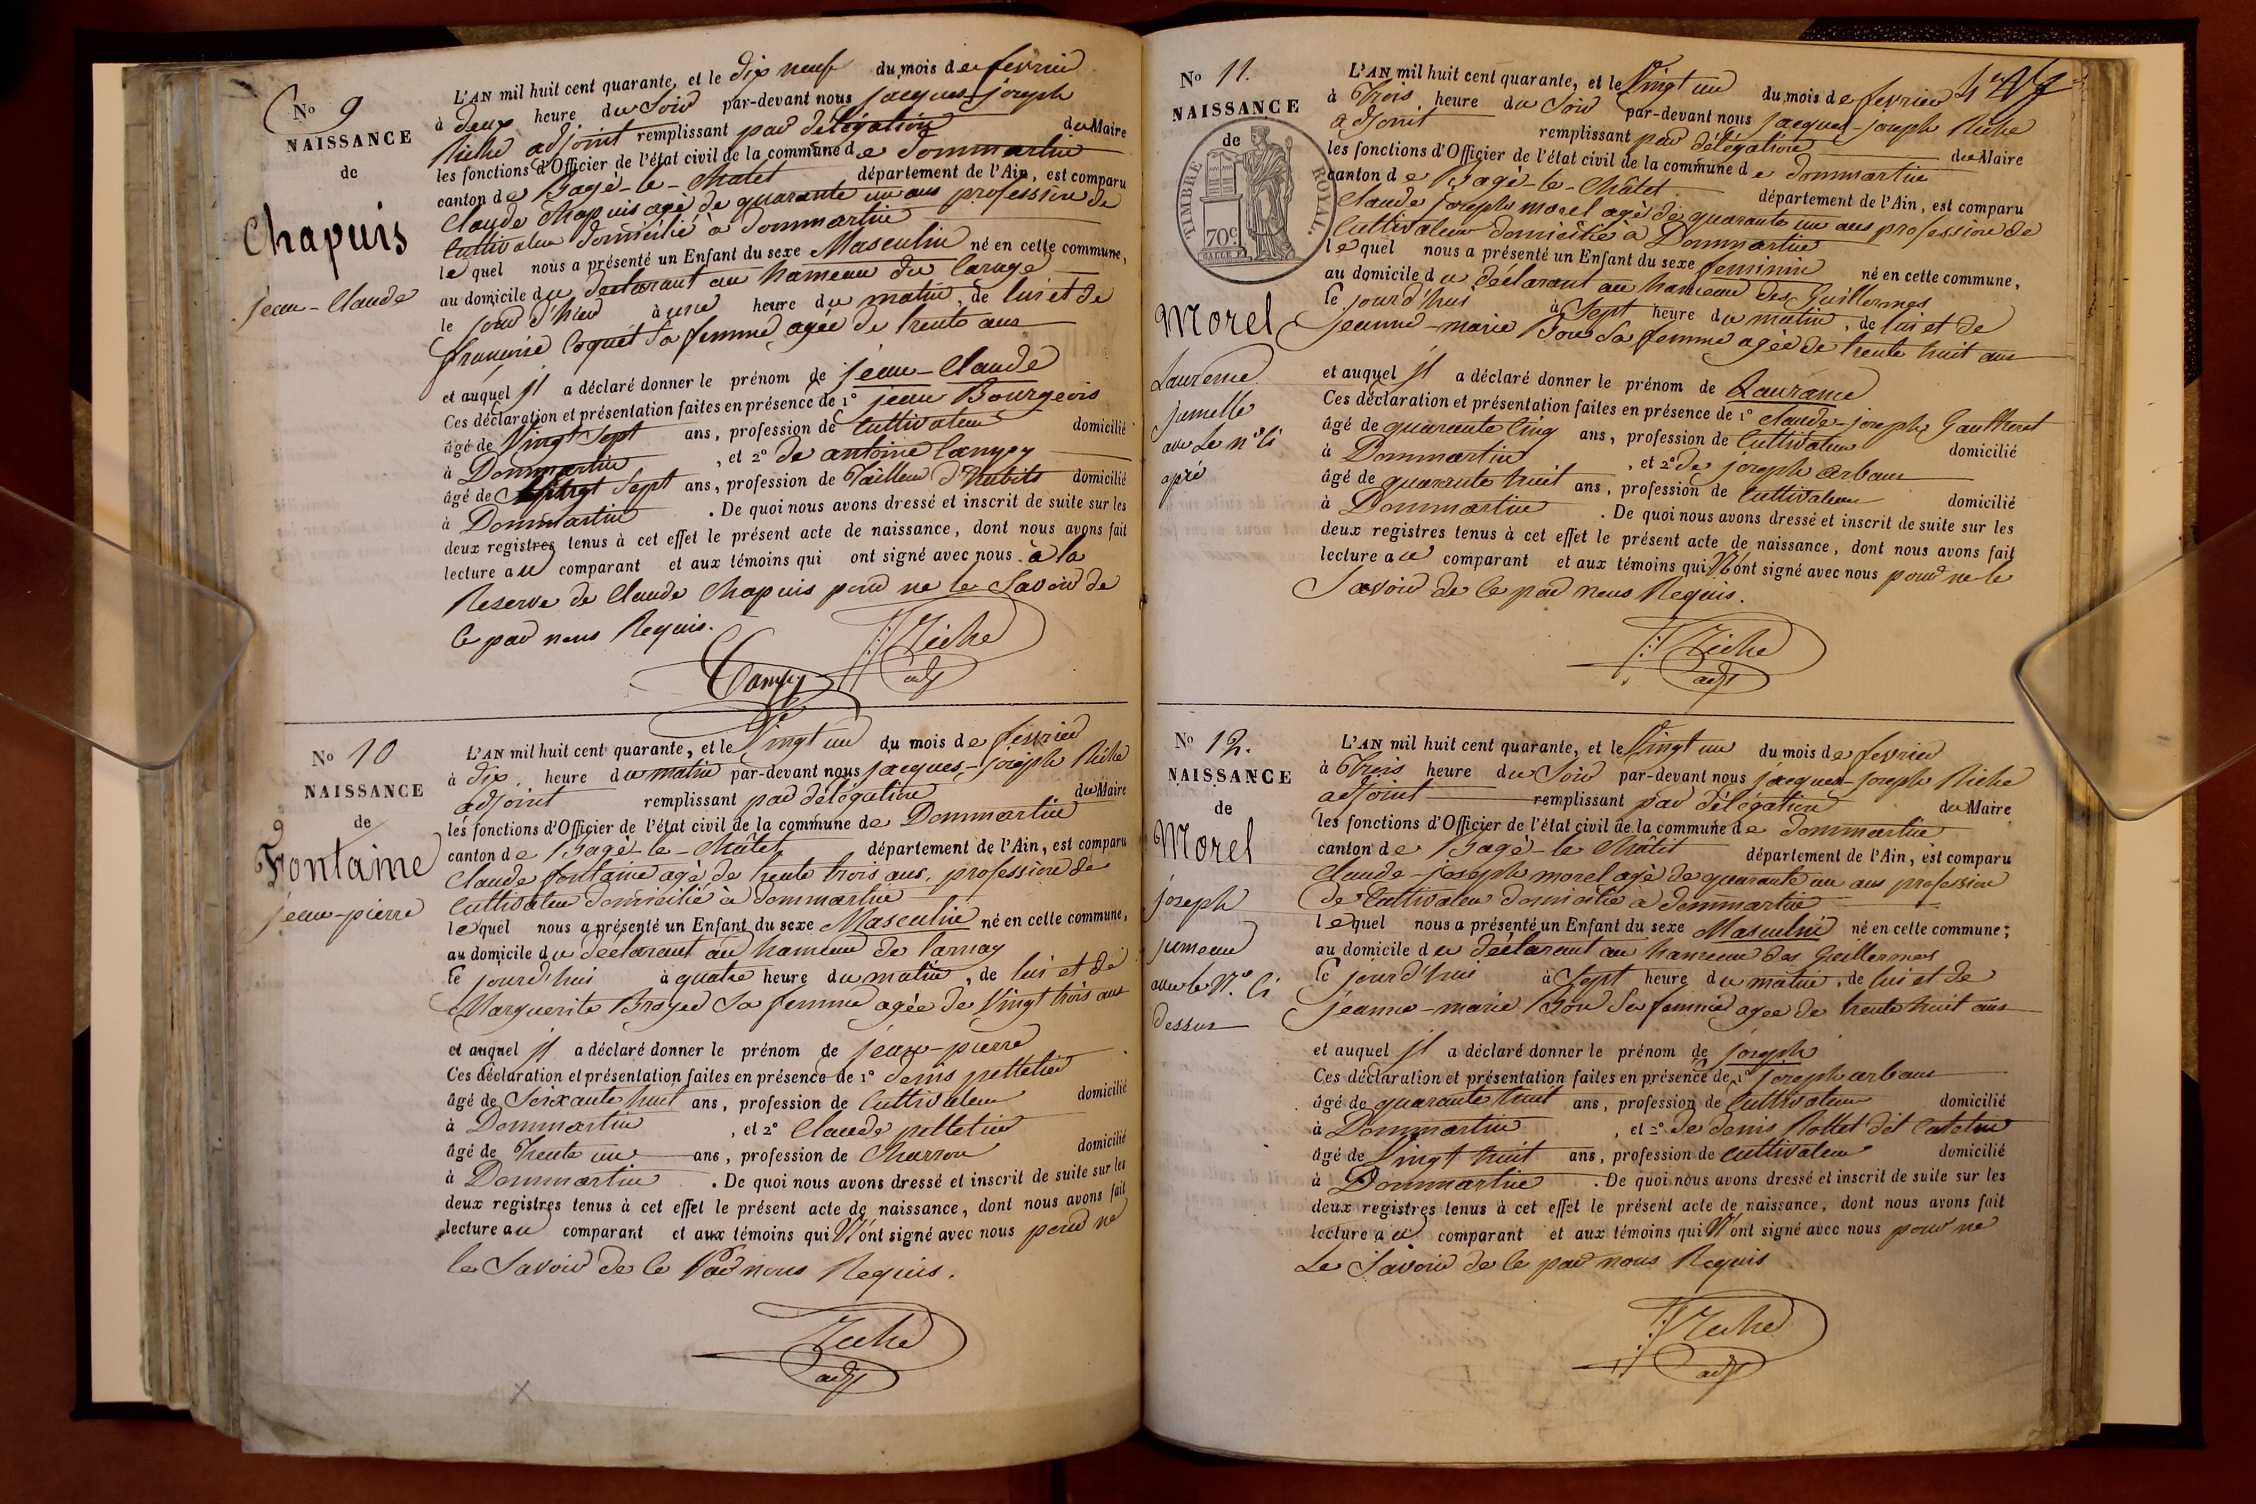 No 9
NAISSANCE
de
Chapuis
jean-Claude
L'AN mil huit cent quarante, et le dix neuf du mois de fevrier
à deux heure du Soir par-devant nous jacques-joseph
Riche adjoint remplissant par délégation du Maire
les fonctions d'Officier de l'état civil de la commune de Dommartin
canton de Bagé-le-Chatel département de l'Ain, est comparu
Claude Chapuis agé de quarante un ans profession de
Cultivateur domicilié à Dommartin
lequel nous a présenté un Enfant du sexe Masculin né en cette commune,
au domicile du declarant au hameau du
le jour d'hier à une heure du matin, de lui et de
françoise Coquet Sa femme, agée de trente ans
et auquel jl a déclaré donner le prénom de jean-Claude
Ces déclaration et présentation faites en présence de 1º jean Bourgeois
âgé de Vingt Sept ans, profession de Cultivateur domicilié
à Dommartin, et 2º de antoine
âgé de Sept ans, profession de Tailleur d'habits domicilié
à Dommartin. De quoi nous avons dressé et inscrit de suite sur les
deux registres tenus à cet effet le présent acte de naissance, dont nous avons fait
lecture au comparant et aux témoins qui ont signé avec nous. à la
Reserve de Claude Chapuis pour ne le Savoir de
ce par nous Requis.
Riche
adj
No 10
NAISSANCE
de
Fontaine
jean-pierre
L'AN mil huit cent quarante, et le Vingt un du mois de février
à dix heure du matin par-devant nous jacques-joseph Riche
adjoint remplissant par délégation du Maire
les fonctions d'Officier de l'état civil de la commune de Dommartin
canton de Bagé-le-Châtel département de l'Ain, est comparu
Claude fontaine agé de trente trois ans, profession de
Cultivateur domicilié à Dommartin
lequel nous a présenté un Enfant du sexe Masculin né en cette commune,
au domicile du declarant au hameau de
le jourd'hui à quatre heure du matin, de lui et de
Marguerite Broyer Sa femme agée de Vingt trois ans
et auquel jl a déclaré donner le prénom de jean-pierre
Ces déclaration et présentation faites en présence de 1º denis pelletier
âgé de Soixante huit ans, profession de Cultivateur domicilié
à Dommartin, et 2º Claude pelletier
âgé de Trente un ans, profession de Charron domicilié
à Dommartin. De quoi nous avons dressé et inscrit de suite sur les
deux registres tenus à cet effet le présent acte de naissance, dont nous avons fait
lecture au comparant et aux témoins qui N'ont signé avec nous pour ne
le Savoir de ce Par nous Requis.
Riche
adj
No 11.
NAISSANCE
de
TIMBRE ROYAL.
70c
Morel
Laurence
jumelle
avec Le nº Ci
après
L'AN mil huit cent quarante, et le Vingt un du mois de fevrier
à Trois heure du Soir par-devant nous jacques-joseph Riche
adjoint remplissant par délégation du Maire
les fonctions d'Officier de l'état civil de la commune de Dommartin
canton de Bagé-le-Châtel département de l'Ain, est comparu
Claude joseph morel agé de quarante un ans profession de
Cultivateur domicilié à Dommartin
lequel nous a présenté un Enfant du sexe feminin né en cette commune,
au domicile du déclarant au hameau des Guillermes
le jourd'hui à Sept heure du matin, de lui et de
jeanne-marie Sa femme agée de trente huit ans
et auquel jl a déclaré donner le prénom de Laurance
Ces déclaration et présentation faites en présence de 1º Claude-joseph
âgé de quarante Cinq ans, profession de Cultivateur domicilié
à Dommartin, et 2º de joseph arbant
âgé de quarante huit ans, profession de Cultivateur domicilié
à Dommartin. De quoi nous avons dressé et inscrit de suite sur les
deux registres tenus à cet effet le présent acte de naissance, dont nous avons fait
lecture au comparant et aux témoins qui N'ont signé avec nous pour ne le
Savoir de ce par nous Requis.
Riche
adjt
No 12.
NAISSANCE
de
Morel
joseph
jumeau
avec le Nº Ci
dessus
L'AN mil huit cent quarante, et le Vingt un du mois de fevrier
à Trois heure du Soir par-devant nous jacques-joseph Riche
adjoint remplissant par délégation du Maire
les fonctions d'Officier de l'état civil de la commune de Dommartin
canton de Bagé-le Châtel département de l'Ain, est comparu
Claude-joseph morel agé de quarante un ans profession
de Cultivateur domicilié à Dommartin
lequel nous a présenté un Enfant du sexe Masculin né en cette commune;
au domicile du déclarant au hameau des Guillermes
le jourd'hui à Sept heure du matin, de lui et de
jeanne-marie Sa femme agée de trente huit ans
et auquel jl a déclaré donner le prénom de joseph
Ces déclaration et présentation faites en présence de 1º joseph arbant
âgé de quarante huit ans, profession de Cultivateur domicilié
à Dommartin, et 2º de denis dit
âgé de Vingt huit ans, profession de cultivateur domicilié
à Dommartin. De quoi nous avons dressé et inscrit de suite sur les
deux registres tenus à cet effet le présent acte de naissance, dont nous avons fait
lecture au comparant et aux témoins qui N'ont signé avec nous pour ne
Le Savoir de ce par nous Requis
Riche
adjt